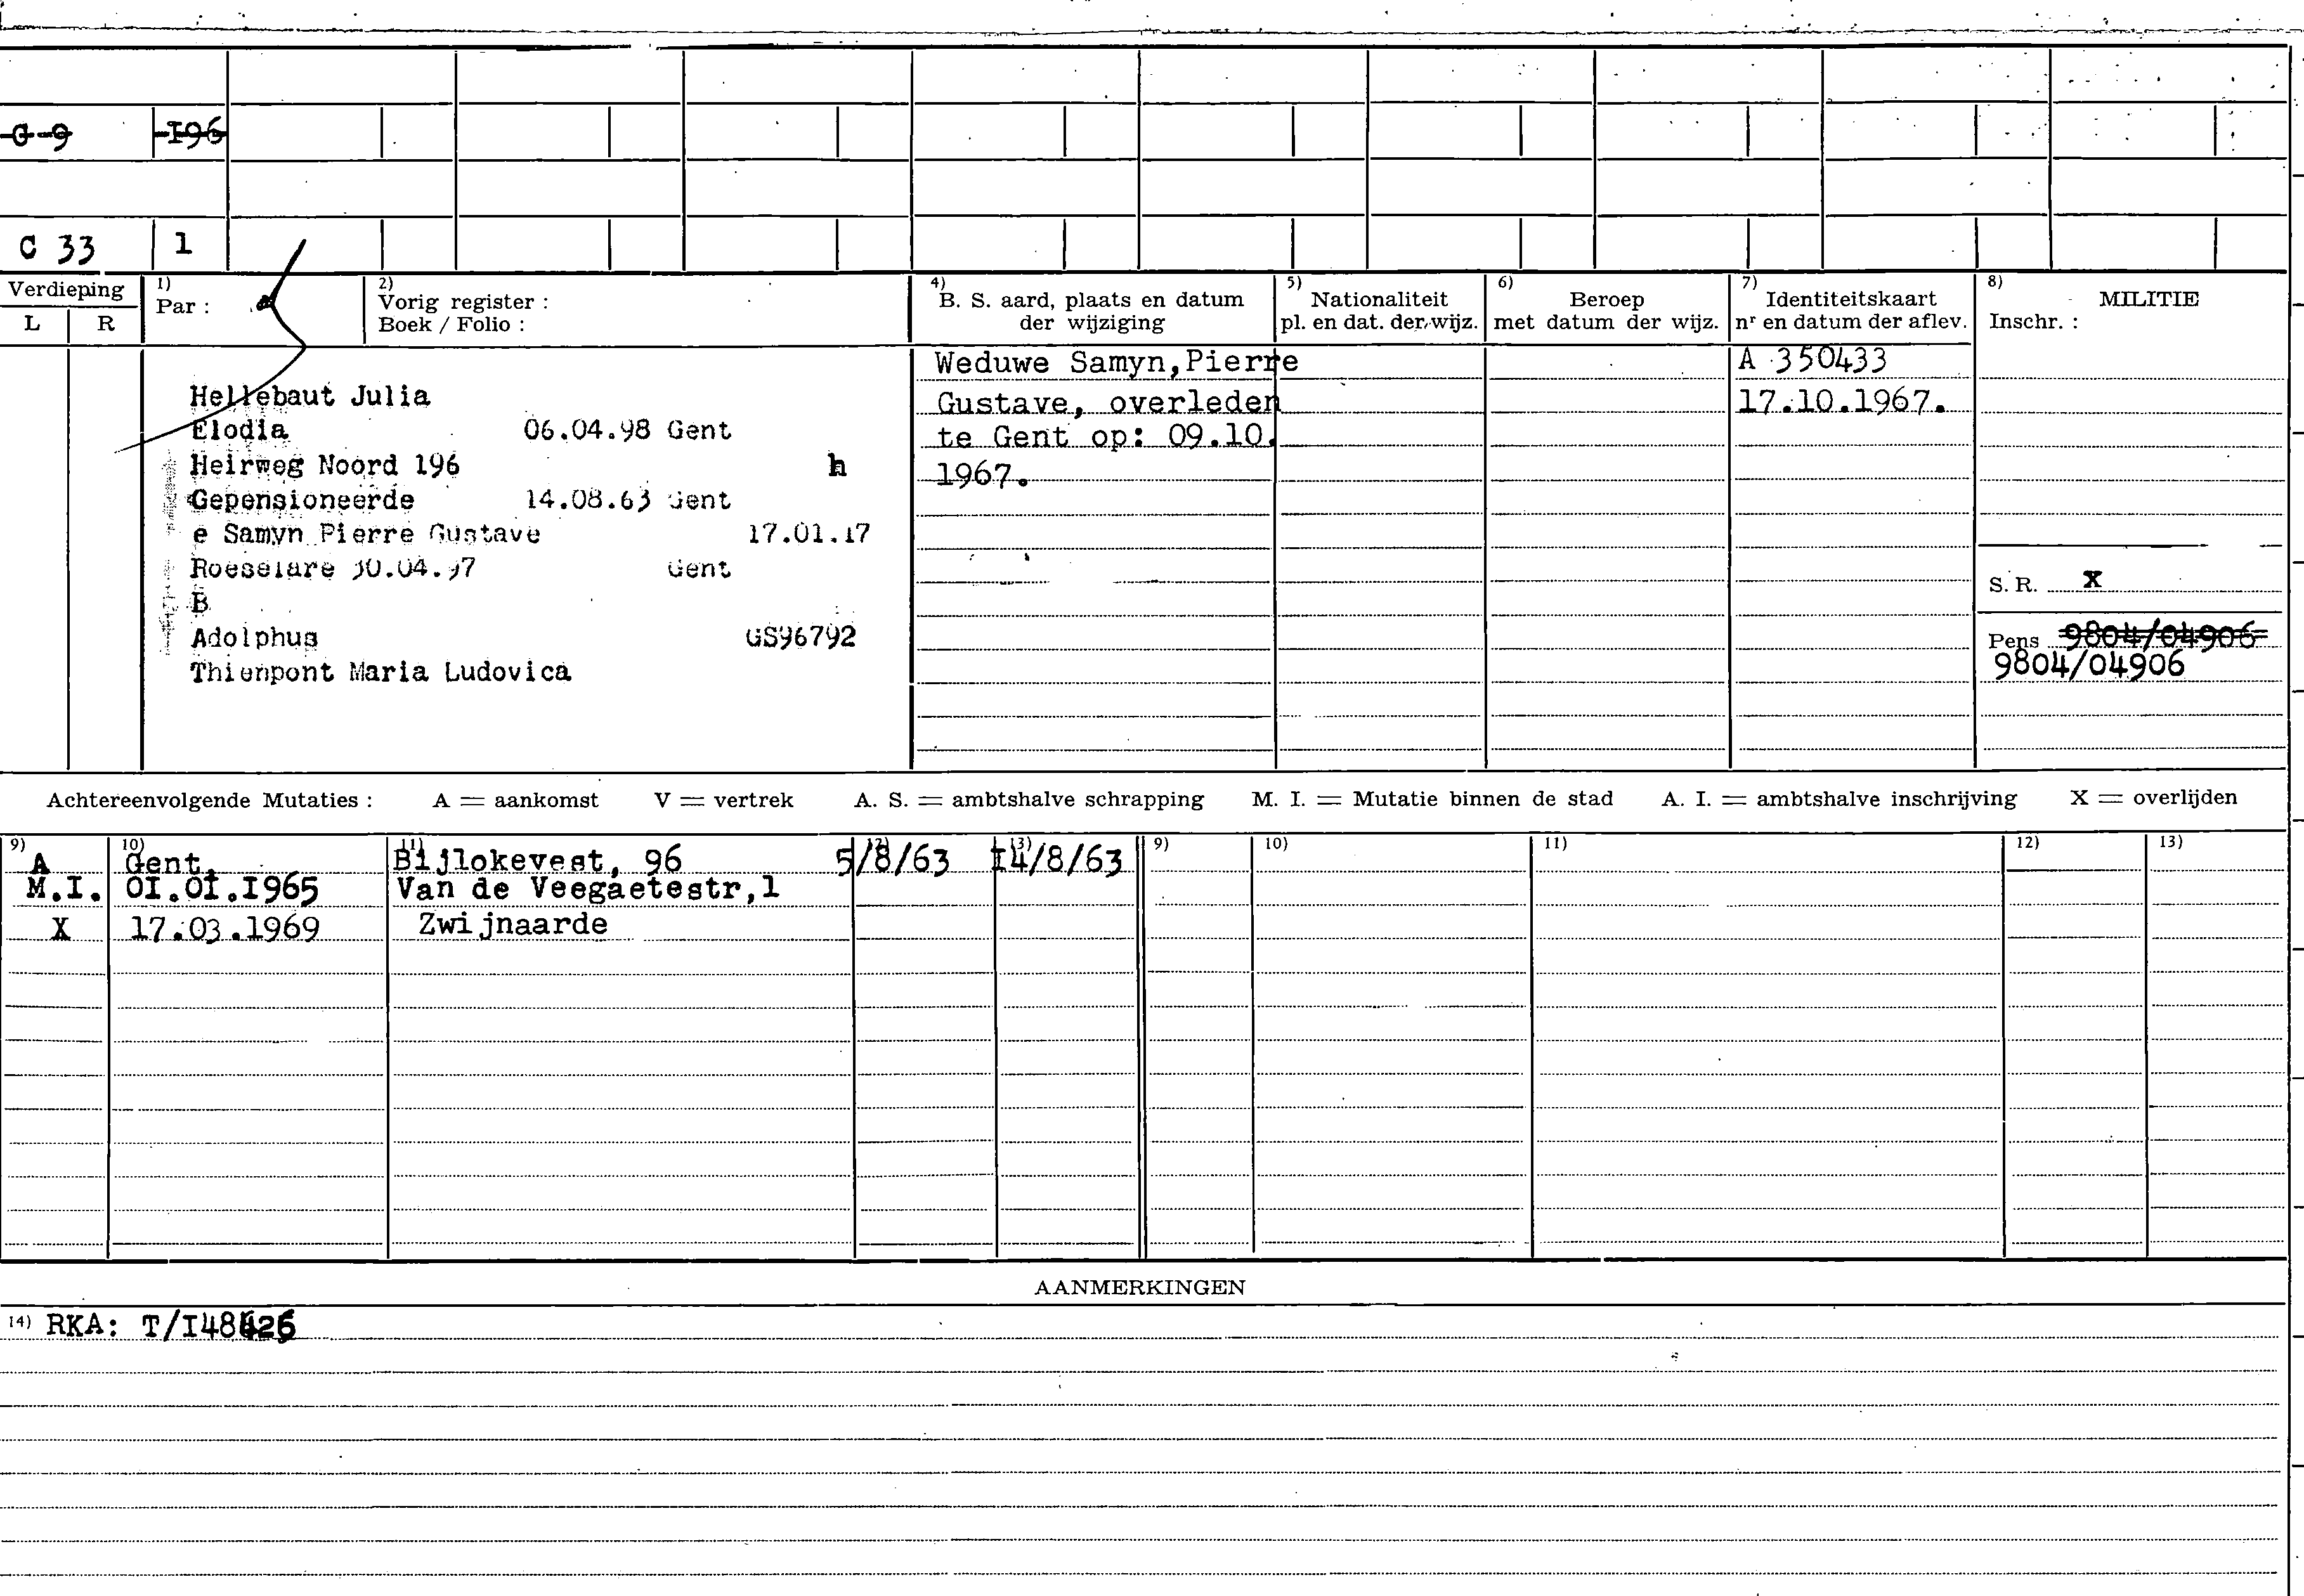 C 9 196
C 33 1
Verdieping
L R
1) Par :
2) Vorig register :
Boek / Folio :
4) B. S. aard, plaats en datum
der wijziging
5) Nationaliteit
pl. en dat. der wijz.
6) Beroep
met datum der wijz.
7) Identiteitskaart
nr en datum der aflev.
8) MILITIE
Inschr. :
Hellebaut Julia
Elodia 06.04.98 Gent
Heirweg Noord 196 h
Gepensioneerde 14.08.63 Gent
e Samyn Pierre Gustave 17.01.17
Roeselare 30.04.97 Gent
B
Adolphus GS96792
Thienpont Maria Ludovica
Weduwe Samyn,Pierre
Gustave, overleden
te Gent op: 09.10.
1967.
A 350433
17.10.1967.
S. R. X
Pens 9804/04906
9804/04906
Achtereenvolgende Mutaties : A = aankomst V = vertrek A. S. = ambtshalve schrapping M. I. = Mutatie binnen de stad A. I. = ambtshalve inschrijving X = overlijden
9) 10) 11) 12) 13) 9) 10) 11) 12) 13)
A Gent, Bijlokevest, 96 5/8/63 I4/8/63
M.I. OI.OI.I965 Van de Veegaetestr,1
X 17.03.1969 Zwijnaarde
AANMERKINGEN
14) RKA: T/I48426